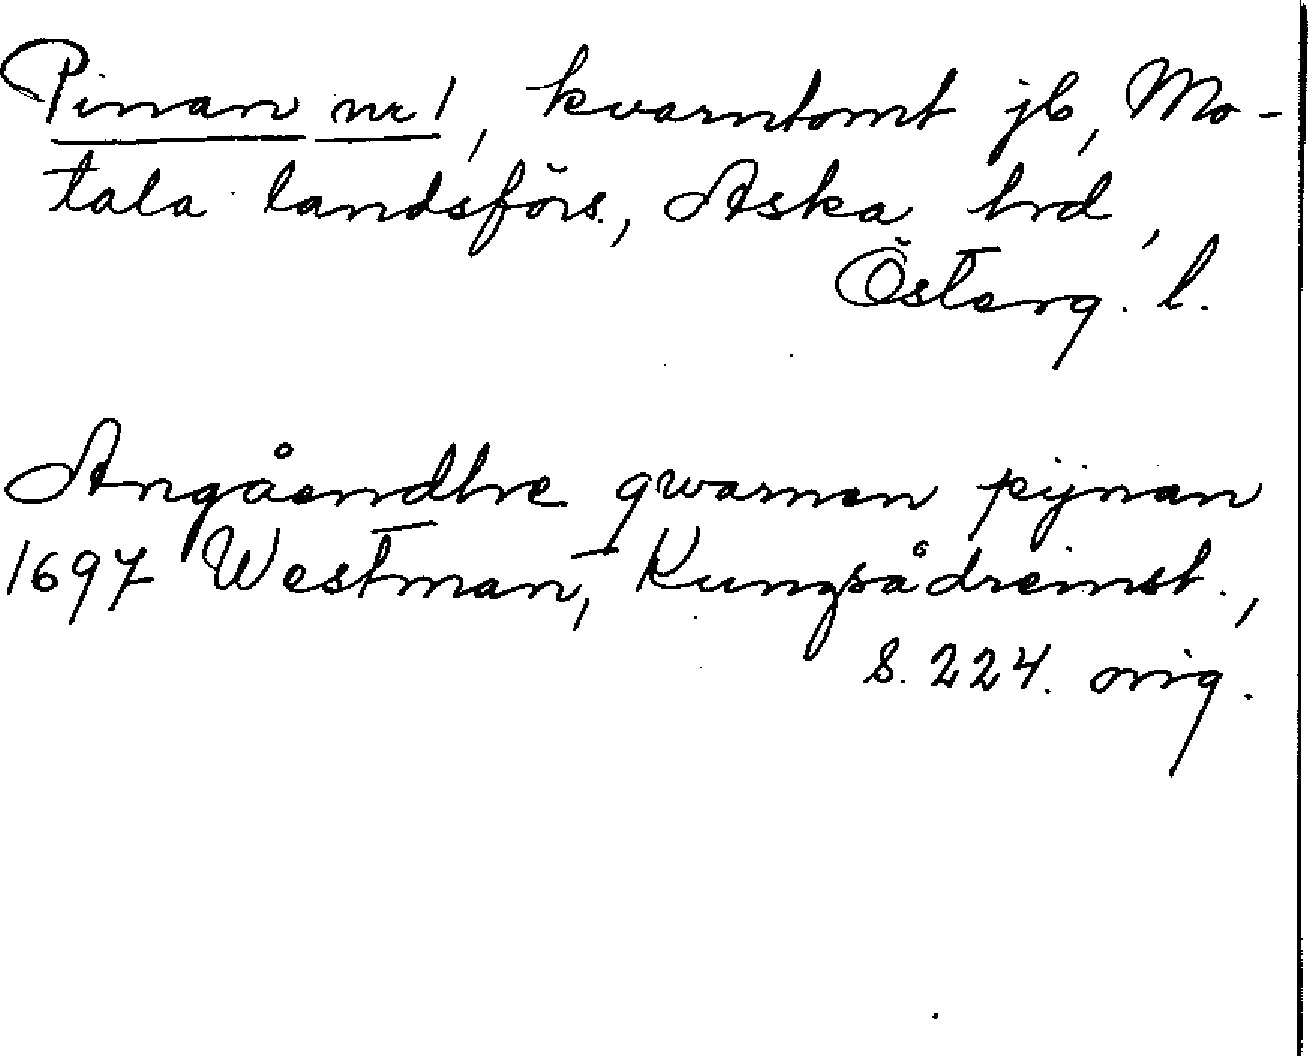 Pinan nr 1, kvarntomt jb, Mo-
tala landsförs., Aska hrd,
Österg. l.
Angåendhe qwarnen pijnan
1697 Westman, Kungsådreinst.,
s. 224. orig.